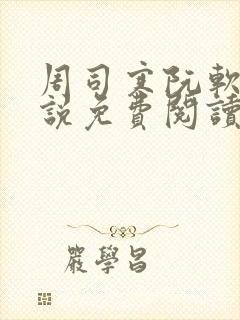 周司寒阮軟
說免費閱讀
嚴學昌